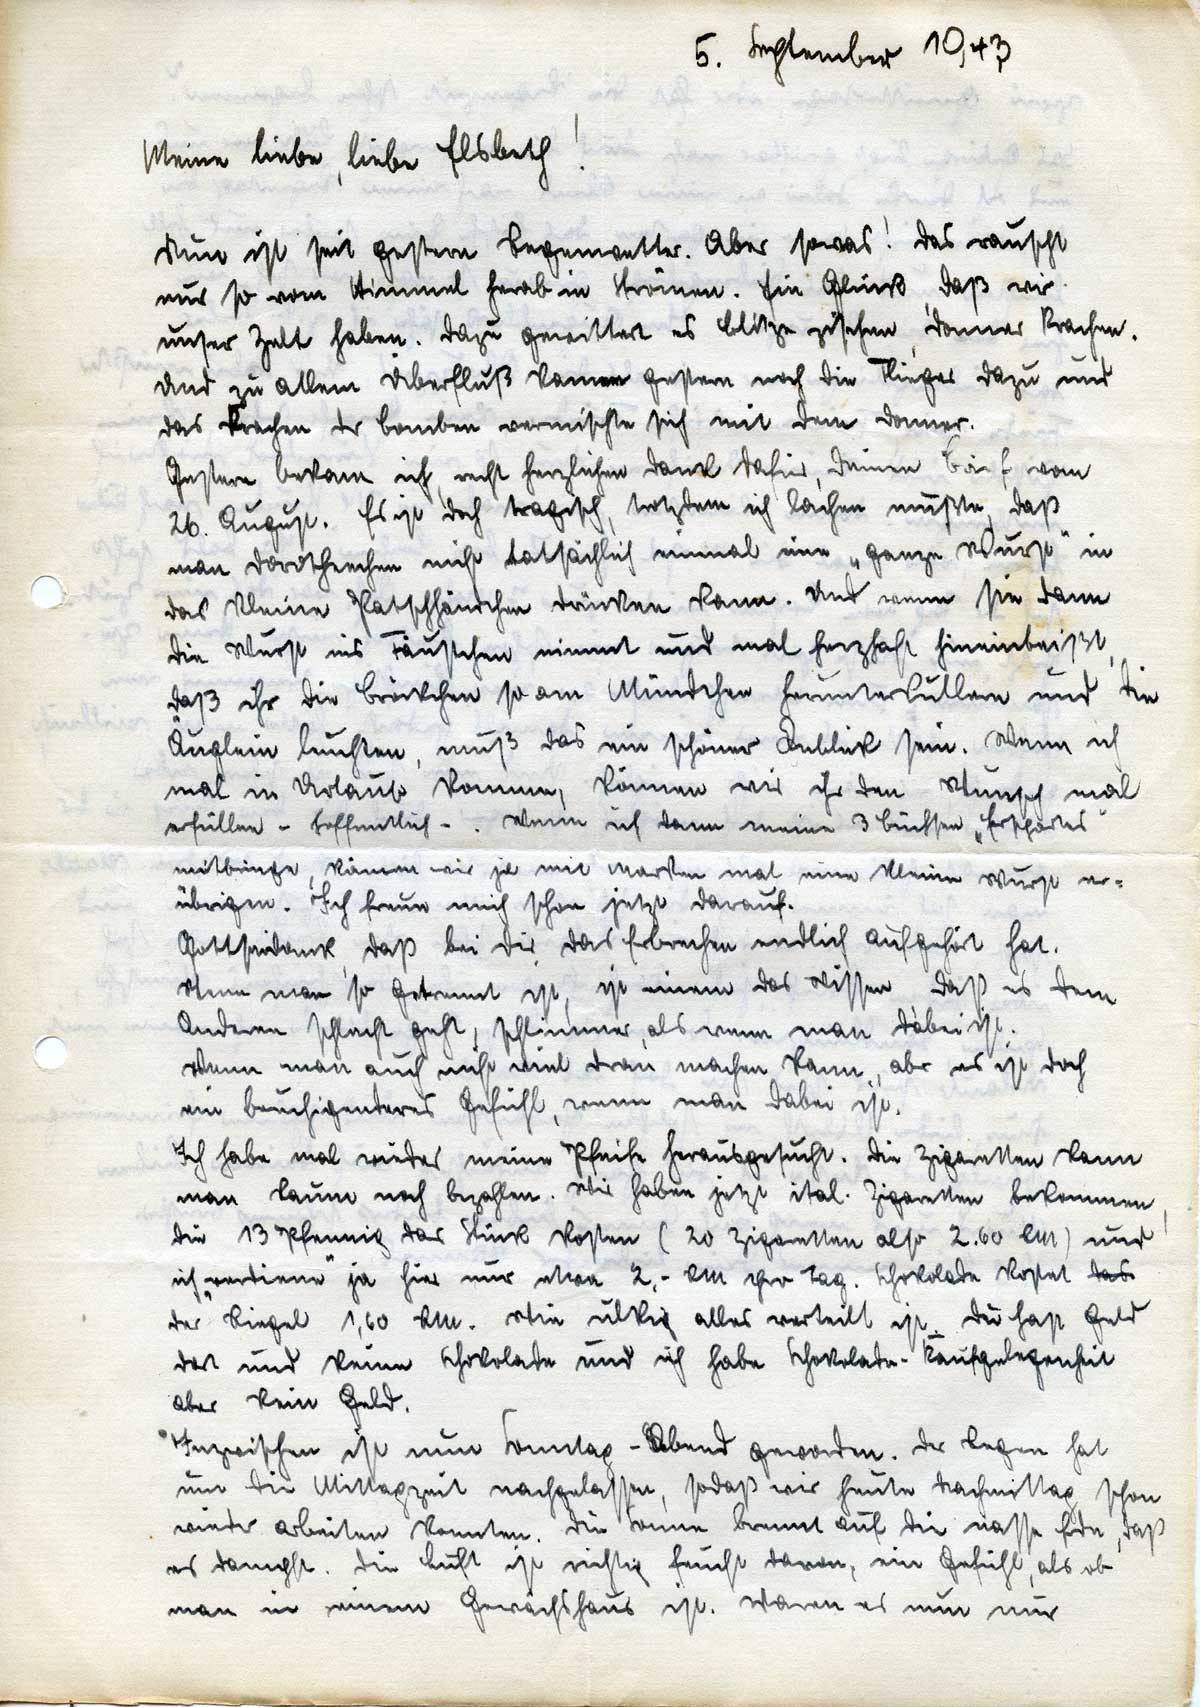 5. September 1943
Meine liebe, liebe Elsbeth!
Nun ist seit gestern Regenwetter. Aber sowas! Das rauscht
nur so vom Himmel herab in Strömen. Ein Glück, daß wir
unser Zelt haben. Dazu gewittert es Blitze zischen, Donner krachen.
Und zu allem Überfluß kamen gestern noch die Flieger dazu und
das Krachen der Bomben vermischte sich mit dem Donner.
Gestern bekam ich, recht herzlichen Dank dafür, Deinen Brief vom
26. August. Es ist doch tragisch, trotzdem ich lachen mußte, daß
man Dorotheechen nicht tatsächlich einmal eine „ganze Wurst" in
das kleine Patschhändchen drücken kann. Und wenn sie dann
die Wurst ins Fäustchen nimmt und mal herzhaft hineinbeißt,
daß ihr die Bröckchen so am Mündchen herunterkullern und die
Äuglein leuchten, muß das ein schöner Anblick sein. Wenn ich
mal in Urlaub komme, können wir ihr den Wunsch mal
erfüllen - hoffentlich - . Wenn ich dann meine 3 Büchsen „Erspartes"
mitbringe, können wir ja mit Marken mal eine kleine Wurst er=
übrigen. Ich freue mich schon jetzt darauf.
Gottseidank, daß bei Dir das Erbrechen endlich aufgehört hat.
Wenn man so getrennt ist, ist einem das Wissen, daß es dem
Anderen schlecht geht, schlimmer, als wenn man dabei ist.
Wenn man auch nicht viel dran machen kann, aber es ist doch
ein beruhigenderes Gefühl, wenn man dabei ist.
Ich habe mal wieder meine Pfeife herausgesucht. Die Zigaretten kann
man kaum noch bezahlen. Wir haben jetzt ital. Zigaretten bekommen,
die 13 Pfennig das Stück kosten (20 Zigaretten also 2.60 RM) und
ich „verdiene" ja hier nur etwa 2,- RM pro Tag. Schokolade kostet das
der Riegel 1,60 RM. Wie ulkig alles verteilt ist. Du hast Geld
dort und keine Schokolade und ich habe Schokolade-Kaufgelegenheit
aber kein Geld.
Inzwischen ist nun Sonntag-Abend geworden. Der Regen hat
um die Mittagzeit nachgelassen, sodaß wir heute Nachmittag schon
wieder arbeiten konnten. Die Sonne brennt auf die nasse Erde, daß
es dampft. Die Luft ist richtig feucht davon, ein Gefühl, als ob
man in einem Gewächshaus ist. Wären es nun nur